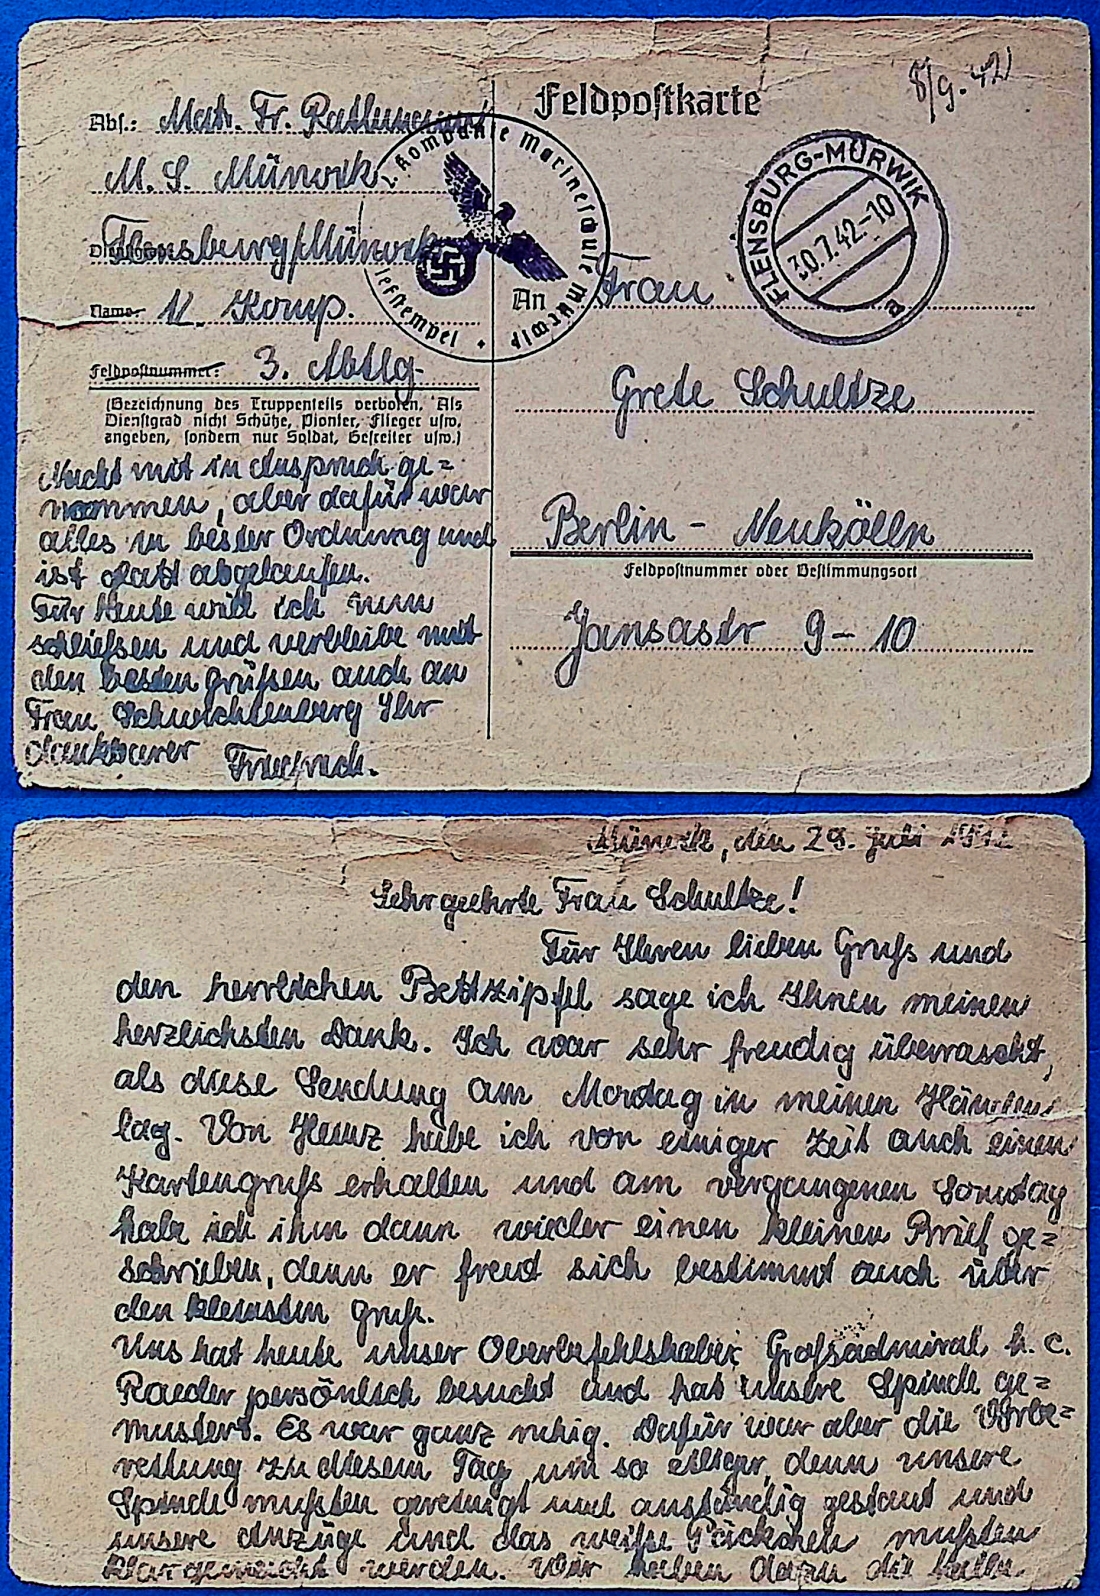 Feldpostkarte
8/9.42
Abs.: Matr. Fr. Rathmann
M. S. Mürwik
Dienstgrad
Flensburg/Mürwik
Name: 11. Komp.
Feldpostnummer: 3. Abtlg.
(Bezeichnung des Truppenteils verboten. Als
Dienstgrad nicht Schütze, Pionier, Flieger usw.
angeben, sondern nur Soldat, Gefreiter usw.)
Kompanie Marineschule Mürwik
Briefstempel
FLENSBURG-MÜRWIK
30.7.42.-10
a
An Frau
Grete Schultze
Berlin - Neukölln
Feldpostnummer oder Bestimmungsort
Jansastr 9-10
Nacht mit in Anspruch ge=
nommen, aber dafür war
alles in bester Ordnung und
ist glatt abgelaufen.
Für Heute will ich nun
schließen und verbleibe mit
den besten grüßen auch an
Frau Schwichtenberg Ihr
dankbarer Friedrich.
Mürwik, den 29. Juli 1942
Sehr geehrte Frau Schultze!
Für Ihren lieben Gruß und
den herrlichen Bettzipfel sage ich Ihnen meinen
herzlichsten Dank. Ich war sehr freudig überrascht,
als diese Sendung am Montag in meinen Händen
lag. Von Heinz habe ich vor einiger Zeit auch einen
Kartengruß erhalten und am vergangenen Sonntag
habe ich ihm dann wieder einen kleinen Brief ge=
schrieben, denn er freut sich bestimmt auch über
den kleinsten Gruß.
Uns hat heute unser Oberbefehlshaber Großadmiral h. c.
Raeder persönlich besucht und hat unsere Spinde ge=
mustert. Es war ganz ruhig. Dafür war aber die Vorbe=
reitung zu diesem Tag um so eiliger, denn unsere
Spinde mußten gereinigt und anständig gestaut und
unsere Anzüge und das weiße Päckchen mußten
klargemacht werden. Wir haben dazu die halbe